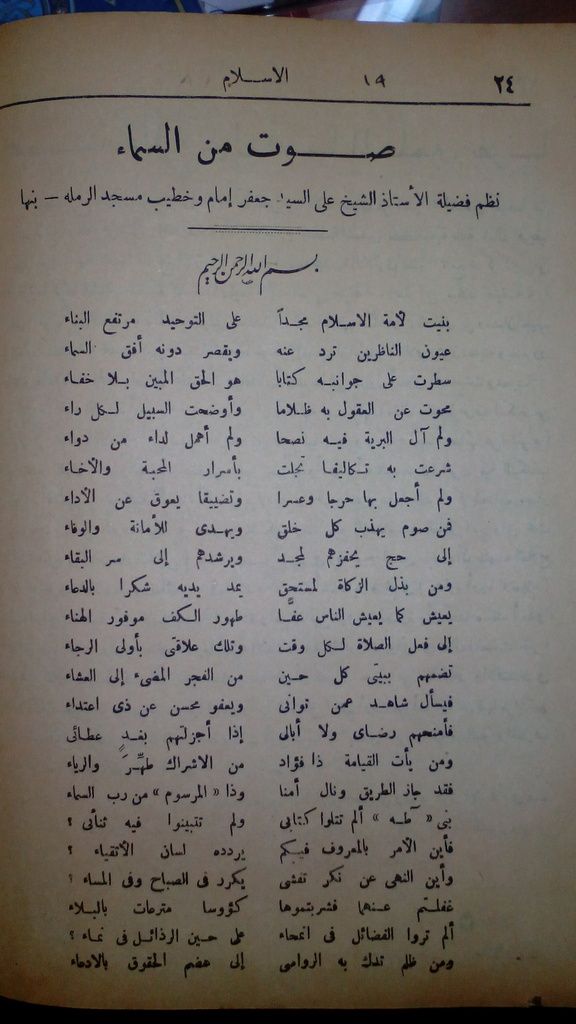 ٢٤ ١٩ الاسلام
صوت من السماء
نظم فضيلة الأستاذ الشيخ على السيد جعفر إمام وخطيب مسجد الرمله — بنها
بسم الله الرحمن الرحيم
بنيت لأمة الاسلام مجداً على التوحيد مرتفع البناء
عيون الناظرين ترد عنه ويقصر دونه أفق السماء
سطرت على جوانبه كتابا هو الحق المبين بلا خفاء
محوت عن العقول به ظلاما وأوضحت السبيل لكل راء
ولم آل البرية فيه نصحا ولم أهمل لداء من دواء
شرعت به تكاليفا تجلت بأسرار المحبة والأخاء
ولم أجعل بها حرجا وعسرا وتضييقا يعوق عن الأداء
فمن صوم يهذب كل خلق ويهدى للأمانة والوفاء
إلى حج يحفزهم لمجد ويرشدهم إلى سر البقاء
ومن بذل الزكاة لمستحق يمد يديه شكرا بالدعاء
يعيش كما يعيش الناس عفَّا طهور الكف موفور الهناء
إلى فعل الصلاة لكل وقت وتلك علاقتى بأولى الرجاء
تضمهم ببيتى كل حين من الفجر المضىء إلى العشاء
فيسأل شاهد عمن توانى ويعفو محسن عن ذى اعتداء
فأمنحهم رضاى ولا أبالى إذا أجزلتهم بغدٍ عطائى
ومن يأت القيامة ذا فؤاد من الاشراك طهِّرَ والرياء
فقد جاز الطريق ونال أمنا وذا « المرسوم » من رب السماء
بنى « طه » ألم تتلوا كتابى ولم تتبينوا فيه ثنائى ؟
فأين الأمر بالمعروف فيكم يردده لسان الأتقياء ؟
وأين النهى عن نكر تفشى يكرر فى الصباح وفى المساء ؟
غفلتم عنهما فشربتموها كؤوسا مترعات بالبلاء
ألم تروا الفضائل فى انمحاء على حين الرذائل فى نماء ؟
ومن ظلم تدك به الرواسى إلى هضم الحقوق بالادعاء